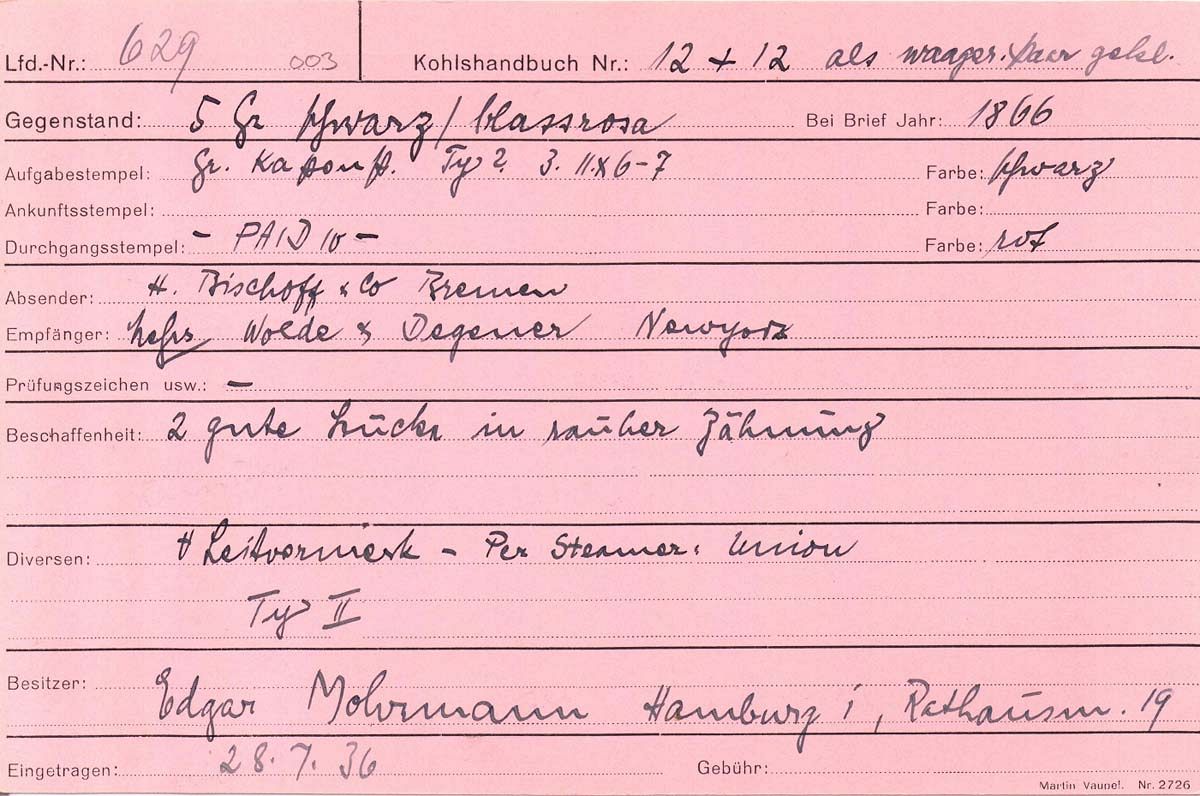 Lfd.-Nr.: 629 003 Kohlshandbuch Nr.: 12 + 12 als waager. Paar gekl.
Gegenstand: 5 Gr schwarz / blassrosa Bei Brief Jahr: 1866
Aufgabestempel: Gr. Ty 2. 3. 11. 6-7 Farbe: schwarz
Ankunftsstempel: Farbe:
Durchgangsstempel: - PAID 10 - Farbe: rot
Absender: H. Bischoff & Co Bremen
Empfänger: Wolde & Degener Newyork
Prüfungszeichen usw.: —
Beschaffenheit: 2 gute Stücke in sauber Zähnung
Diversen: Leitvermerk - Per Steamer: Union
Typ II
Besitzer: Edgar Mohrmann Hamburg 1, Rathausm. 19
Eingetragen: 28. 7. 36 Gebühr:
Martin Vaupel. Nr. 2726